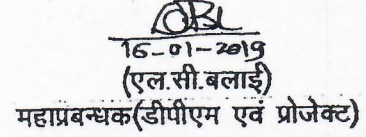 16-01-2019
(एल.सी.बलाई)
महाप्रबन्धक(डीपीएम एवं प्रोजेक्ट)